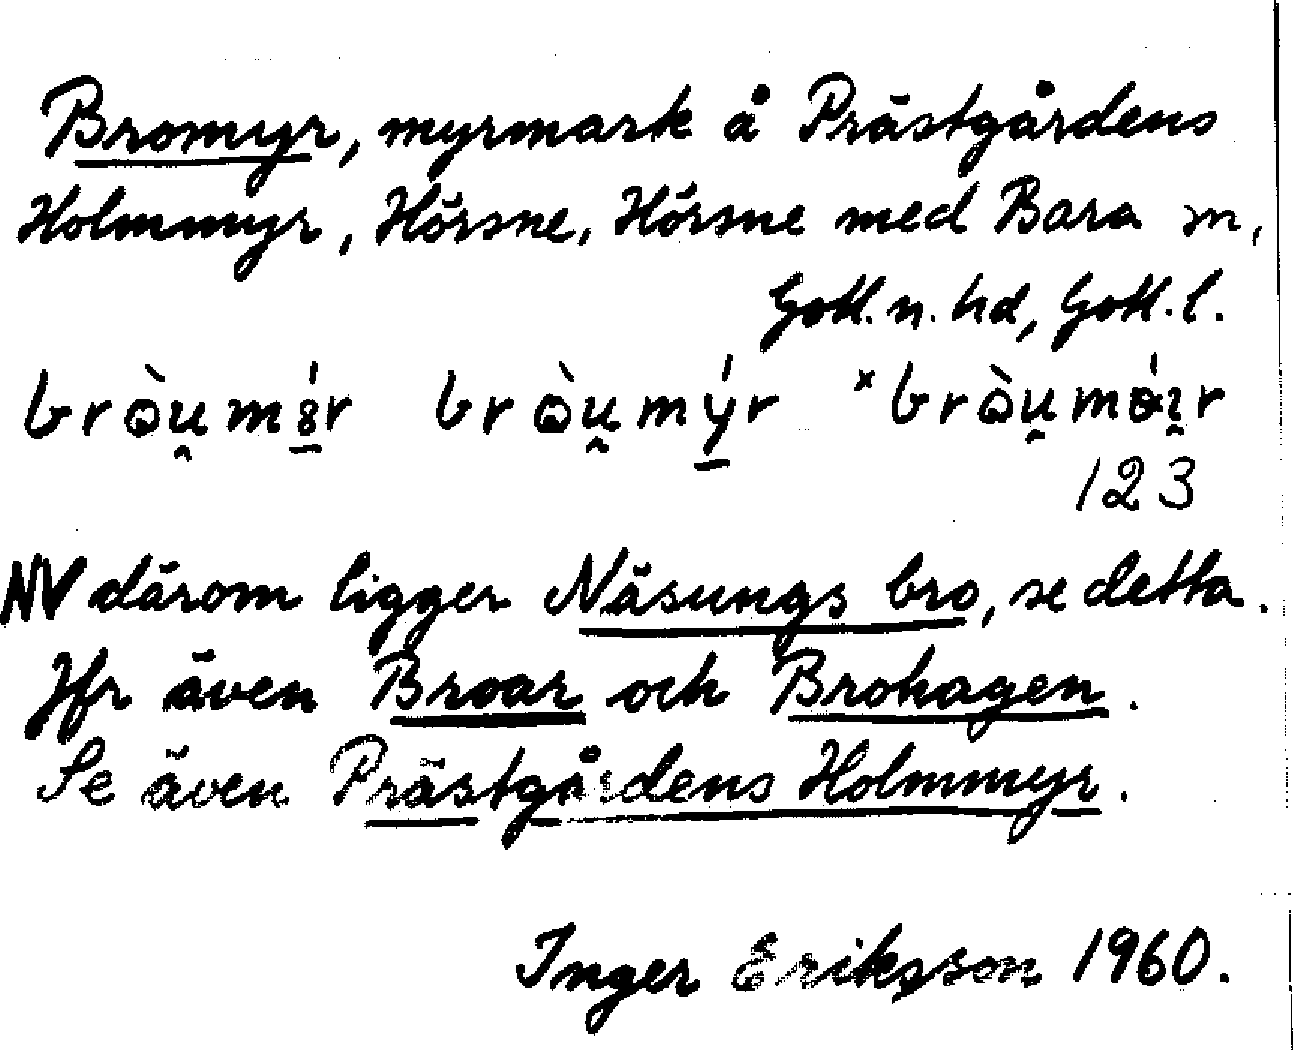 Bromyr, myrmark å Prästgårdens
Holmmyr, Hörsne, Hörsne med Bara m,
Gotl. n. hd, Gotl. l.
123
NV därom ligger Näsungs bro, se detta.
Jfr även Broar och Brohagen.
Se även Prästgårdens Holmmyr.
Inger Eriksson 1960.